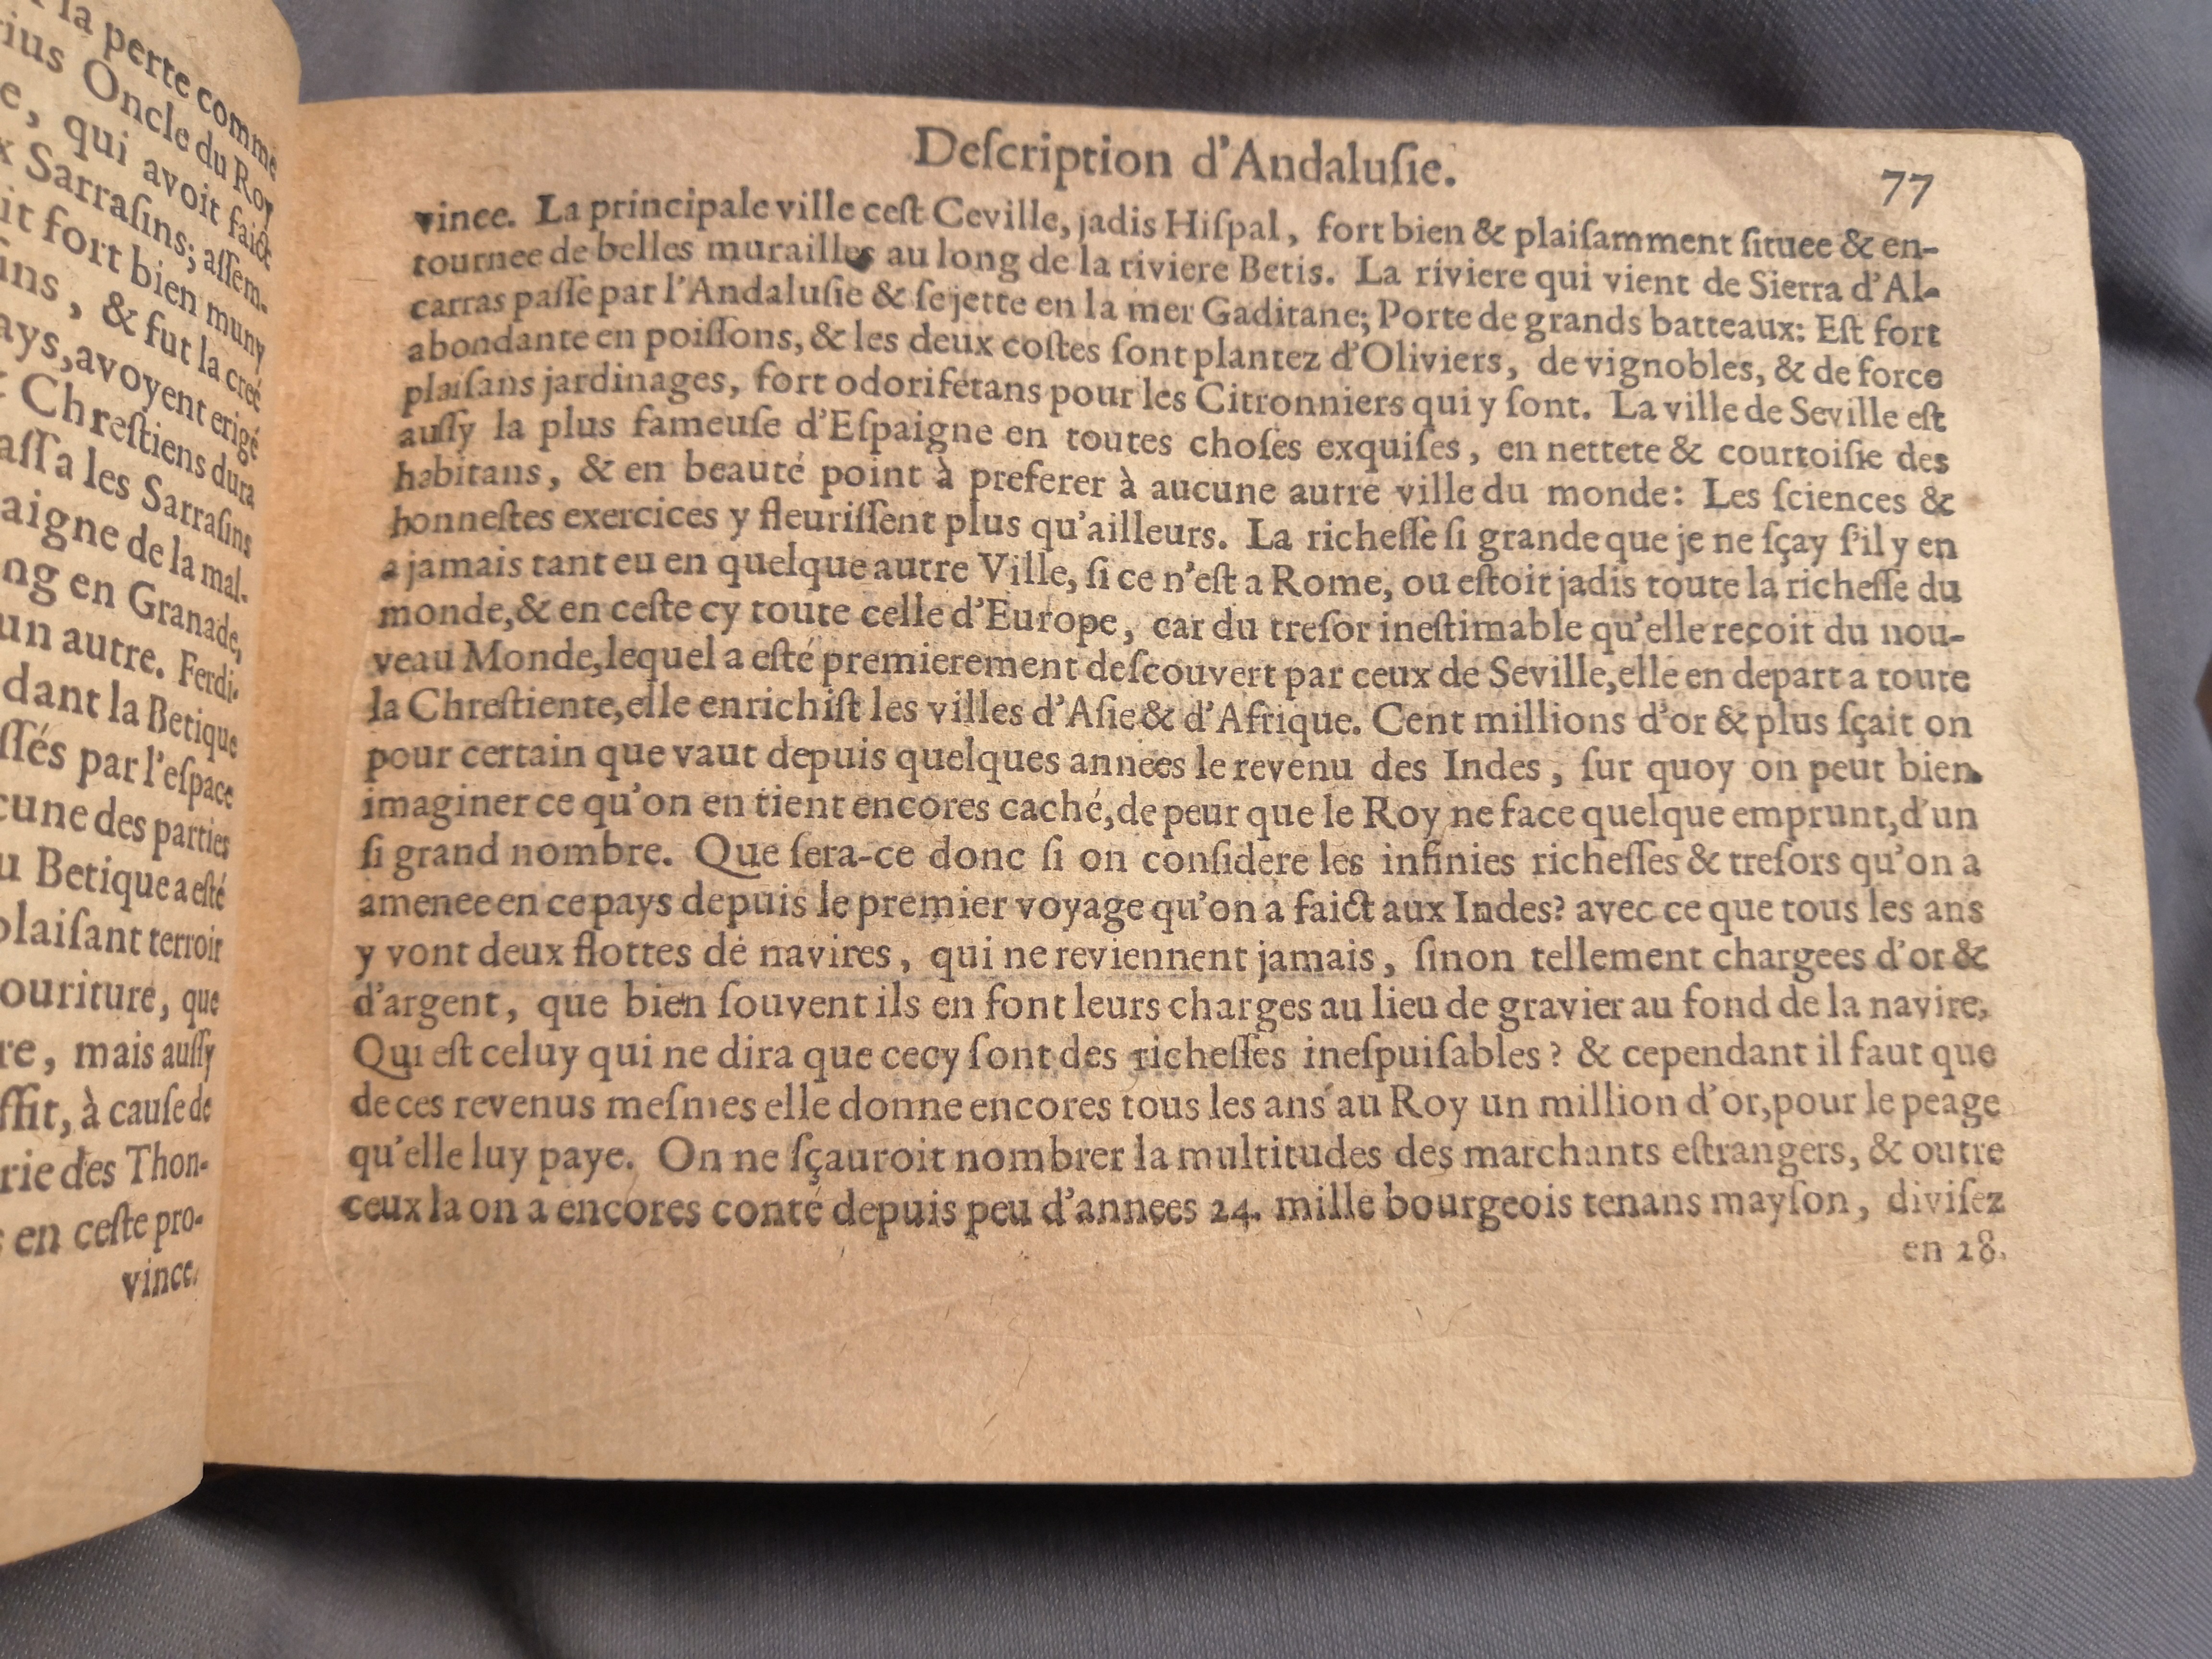 la perte comme
ius Oncle du Roy
e, qui avoit faict
x Sarraſins; aſſem-
it fort bien muny
ins, & fut la creé
ays, avoyent erigé
t Chreſtiens dura
aſſa les Sarraſins
aigne de la mal-
ng en Granade,
un autre. Ferdi-
dant la Betique
ſſés par l'eſpace
cune des parties
u Betique a eſté
plaiſant terroir
ouriture, que
re, mais auſſy
ffit, à cauſe de
rie des Thon-
en ceſte pro-
vince.
Deſcription d'Andaluſie.
77
vince. La principale ville ceſt Ceville, jadis Hiſpal, fort bien & plaiſamment ſituee & en-
tournee de belles murailles au long de la riviere Betis. La riviere qui vient de Sierra d'Al-
carras paſſe par l'Andaluſie & ſe jette en la mer Gaditane; Porte de grands batteaux: Eſt fort
abondante en poiſſons, & les deux coſtes ſont plantez d'Oliviers, de vignobles, & de force
plaiſans jardinages, fort odoriferans pour les Citronniers qui y ſont. La ville de Seville eſt
auſſy la plus fameuſe d'Eſpaigne en toutes choſes exquiſes, en nettete & courtoiſie des
habitans, & en beauté point à preferer à aucune autre ville du monde: Les ſciences &
honneſtes exercices y fleuriſſent plus qu'ailleurs. La richeſſe ſi grande que je ne ſçay ſ'il y en
a jamais tant eu en quelque autre Ville, ſi ce n'eſt a Rome, ou eſtoit jadis toute la richeſſe du
monde, & en ceſte cy toute celle d'Europe, car du treſor ineſtimable qu'elle reçoit du nou-
veau Monde, lequel a eſté premierement deſcouvert par ceux de Seville, elle en depart a toute
la Chreſtiente, elle enrichiſt les villes d'Aſie & d'Afrique. Cent millions d'or & plus ſçait on
pour certain que vaut depuis quelques années le revenu des Indes, ſur quoy on peut bien
imaginer ce qu'on en tient encores caché, de peur que le Roy ne face quelque emprunt, d'un
ſi grand nombre. Que ſera-ce donc ſi on conſidere les infinies richeſſes & treſors qu'on a
amenee en ce pays depuis le premier voyage qu'on a faict aux Indes? avec ce que tous les ans
y vont deux flottes de navires, qui ne reviennent jamais, ſinon tellement chargees d'or &
d'argent, que bien ſouvent ils en font leurs charges au lieu de gravier au fond de la navire,
Qui eſt celuy qui ne dira que cecy ſont des richeſſes ineſpuiſables? & cependant il faut que
de ces revenus meſmes elle donne encores tous les ans au Roy un million d'or, pour le peage
qu'elle luy paye. On ne ſçauroit nombrer la multitudes des marchants eſtrangers, & outre
ceux la on a encores conté depuis peu d'annees 24. mille bourgeois tenans mayſon, diviſez
en 28.